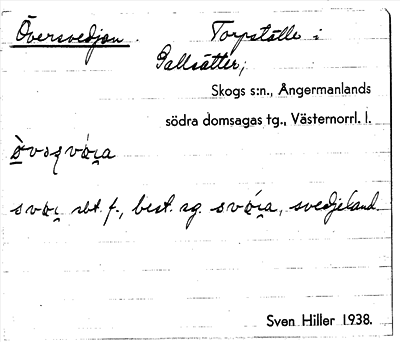 Översvedjan. Torpställe i
Gallsätter,
Skogs s:n., Ångermanlands
södra domsagas tg., Västernorrl. l.
sbt. f., best. sg. svedjeland.
Sven Hiller 1938.